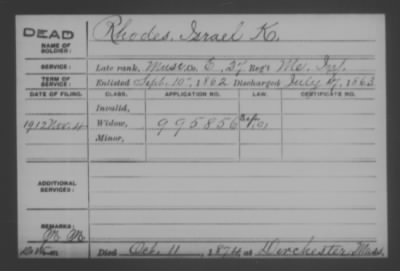 DEAD
Rhodes, Israel K.
NAME OF SOLDIER:
SERVICE: Late rank, Musc. Co. E, 27 Reg't Me. Inf.
TERM OF SERVICE: Enlisted Sept. 10, 1862 Discharged July 17, 1863
DATE OF FILING. CLASS. APPLICATION NO. LAW. CERTIFICATE NO.
Invalid,
1912 Nov. 4 Widow, 995856
Minor,
ADDITIONAL SERVICES:
REMARKS:
Died Oct. 11, 1874, at Dorchester, Mass.